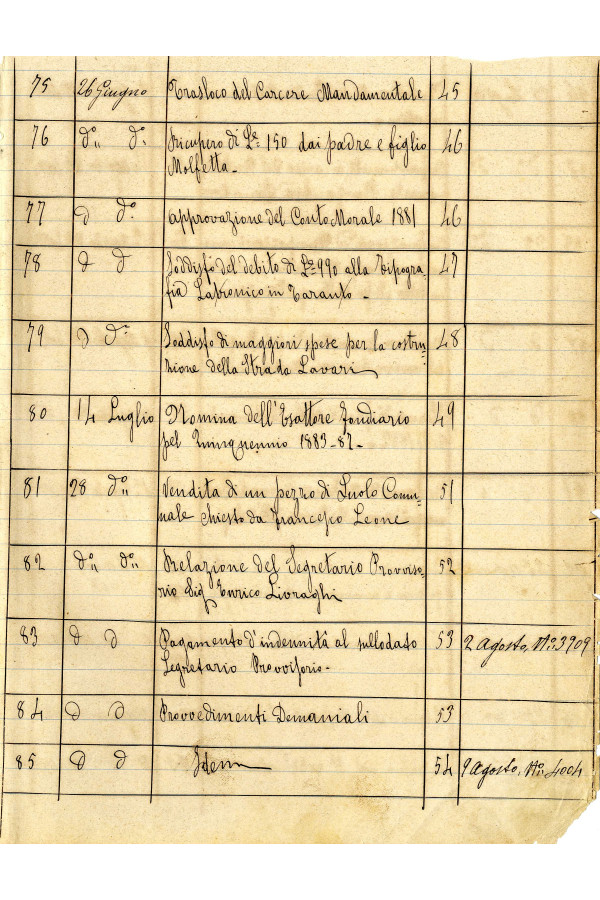 75 26 Giugno Trasloco del Carcere Mandamentale 45
76 do,, do,, Ricupero di L.e 150 dai padre e figlio 46
Molfetta.-
77 d do. Approvazione del Conto Morale 1881 46
78 d d Soddisfo del debito di L.e 990 alla Tipogra-
fia Latronico in Taranto - 47
79 d do. Soddisfo di maggiori spese per la costru- 48
zione della Strada Lavari
80 14 Luglio Nomina dell'Esattore fondiario 49
pel Quinquennio 1883-87.-
81 28 do,, Vendita di un pezzo di Suolo Comu- 51
nale chiesto da Francesco Leone
82 do,, do,, Relazione del Segretario Provviso- 52
rio Sig. Enrico Livraghi
83 d d Pagamento d'indennità al sullodato 53 2 Agosto, No. 3909
Segretario Provvisorio-
84 d d Provvedimenti Demaniali 53
85 d d Idem 54 9 Agosto, No. 4004